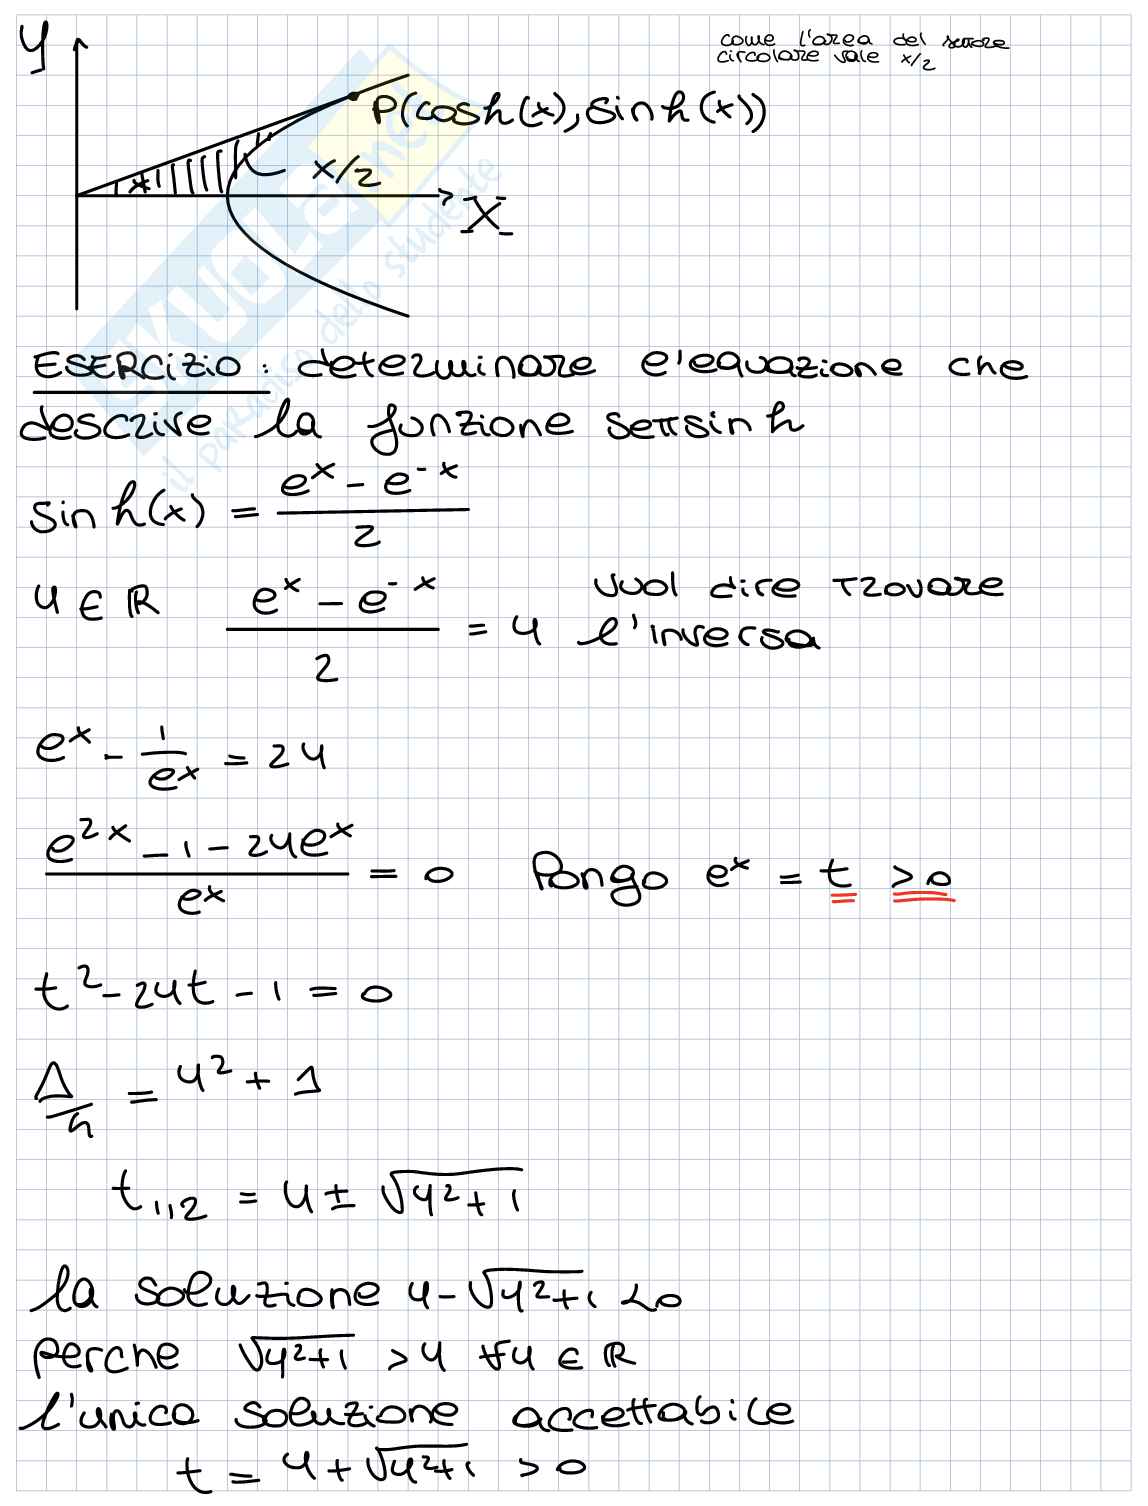 y
come l'area del settore
circolare vale x/2
P(cosh(x), sinh(x))
x/2
X
SKUOLA.net
il paradiso dello studente
ESERCIZIO: determinare l'equazione che
descrive la funzione settsinh
sinh(x) = (e^x - e^-x)/2
y ∈ ℝ (e^x - e^-x)/2 = y vuol dire trovare
l'inversa
e^x - 1/e^x = 2y
(e^2x - 1 - 2ye^x)/e^x = 0 Pongo e^x = t > 0
t² - 2yt - 1 = 0
Δ/4 = y² + 1
t₁,₂ = y ± √(y² + 1)
la soluzione y - √(y² + 1) < 0
perche √(y² + 1) > y ∀y ∈ ℝ
l'unica soluzione accettabile
t = y + √(y² + 1) > 0